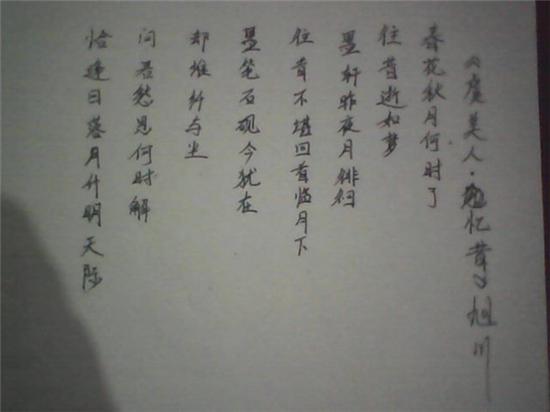 《虞美人·忆昔》旭川
春花秋月何时了
往昔逝如梦
墨轩昨夜月徘徊
往昔不堪回首临月下
墨笔石砚今犹在
却堆纤与尘
问君愁思何时解
恰逢日落月升明天际